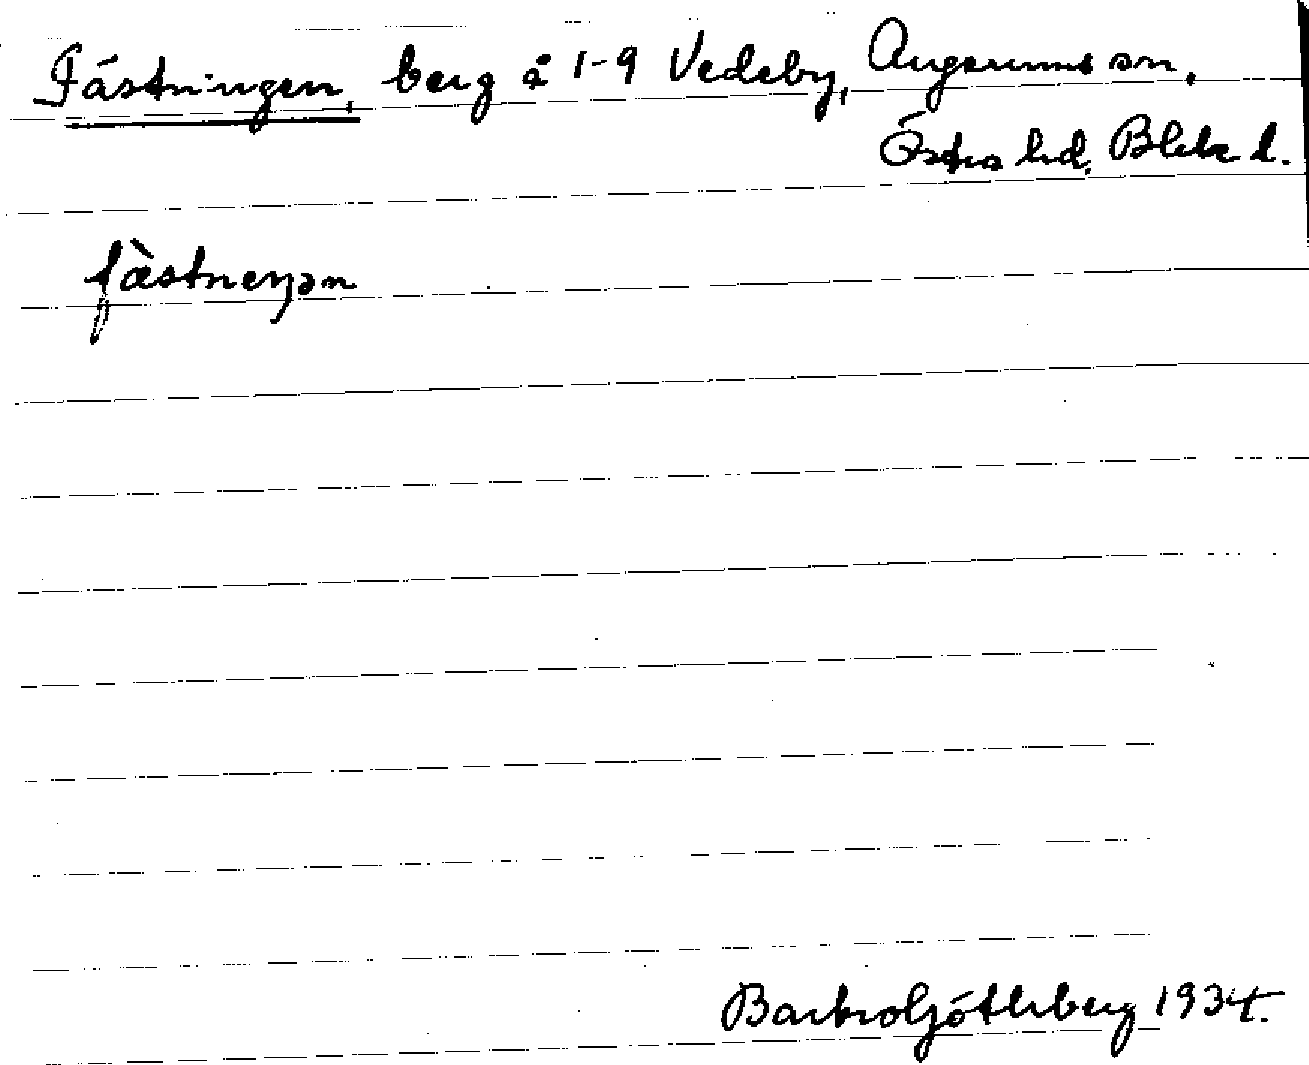 Fästningen, berg å 1-9 Vedeby, Augerums sn,
Östra hd. Blek l.
fàstneŋən
Barbro Götlberg 1934.